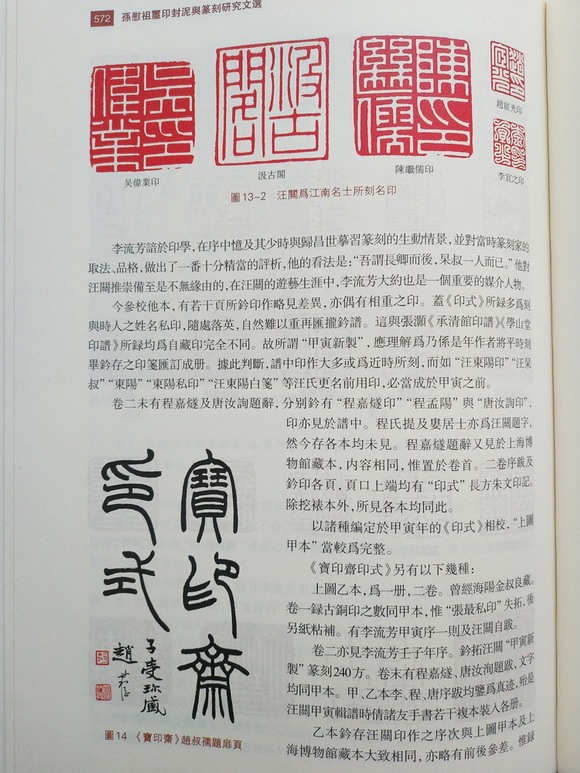 572 孫慰祖璽印封泥與篆刻研究文選
吴偉業印
汲古閣
陳繼儒印
趙宧光印
李宜之印
圖13-2 汪關爲江南名士所刻名印
李流芳諳於印學,在序中憶及其少時與歸昌世摹習篆刻的生動情景,並對當時篆刻家的
取法、品格,做出了一番十分精當的評析,他的看法是:“吾謂長卿而後,杲叔一人而已。”他對
汪關推崇備至是不無緣由的,在汪關的遊藝生涯中,李流芳大約也是一個重要的媒介人物。
今參校他本,有若干頁所鈐印作略見差異,亦偶有相重之印。蓋《印式》所録多爲刻
與時人之姓名私印,隨處落英,自然難以重再匯攏鈐譜。這與張灝《承清館印譜》《學山堂
印譜》所録均爲自藏印完全不同。故所謂“甲寅新製”,應理解爲乃係是年作者將平時刻
畢鈐存之印箋匯訂成册。據此判斷,譜中印作大多或爲近時所刻,而如“汪東陽印”“汪杲
叔”“東陽”“東陽私印”“汪東陽白箋”等汪氏更名前用印,必當成於甲寅之前。
卷二未有程嘉燧及唐汝詢題辭,分别鈐有“程嘉燧印”“程孟陽”與“唐汝詢印”,
印亦見於譜中。程氏提及婁居士亦爲汪關題字,
然今存各本均未見。程嘉燧題辭又見於上海博
物館藏本,内容相同,惟置於卷首。二卷序跋及
鈐印各頁,頁口上端均有“印式”長方朱文印記。
除挖裱本外,所見各本均同此。
以諸種編定於甲寅年的《印式》相校,“上圖
甲本”當較爲完整。
《寶印齋印式》另有以下幾種:
上圖乙本,爲一册,二卷。曾經海陽金叔良藏。
卷一録古銅印之數同甲本,惟“張最私印”失拓,後
另紙粘補。有李流芳甲寅序一則及汪關自跋。
卷二亦見李流芳壬子年序。鈐拓汪關“甲寅新
製”篆刻240方。卷末有程嘉燧、唐汝洵題跋,文字
均同甲本。甲、乙本李、程、唐序跋均鑒爲真迹,殆是
汪關甲寅輯譜時倩諸友手書若干複本裝入各册。
乙本鈐存汪關印作之序次與上圖甲本及上
海博物館藏本大致相同,亦略有前後參差。惟録
寶印齋
印式
子受珍藏
趙
圖14 《寶印齋》趙叔孺題扉頁